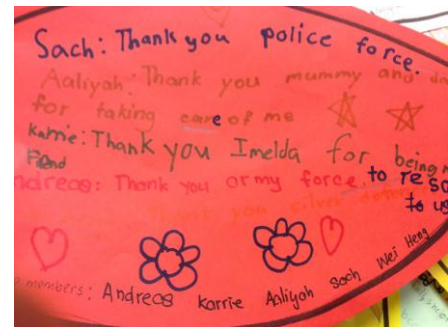 Sach: Thank you police force.
Aaliyah: Thank you mummy and da
for taking care of me
Karrie: Thank you Imelda for being m
Fiend
ndreas: Thank you army force to res
to us
thank you silver
members: Andreas Karrie Aaliyah Sach Wei Heng